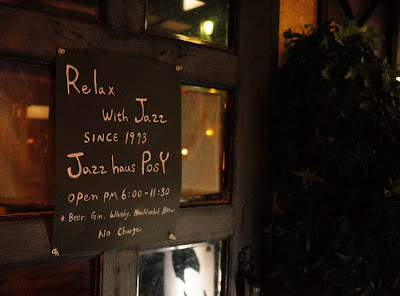 Relax
With Jazz
SINCE 1973
Jazz haus PosY
open PM 6:00-11:30
* Beer, Gin, Whisky, NonAlcohol Beer
No Charge